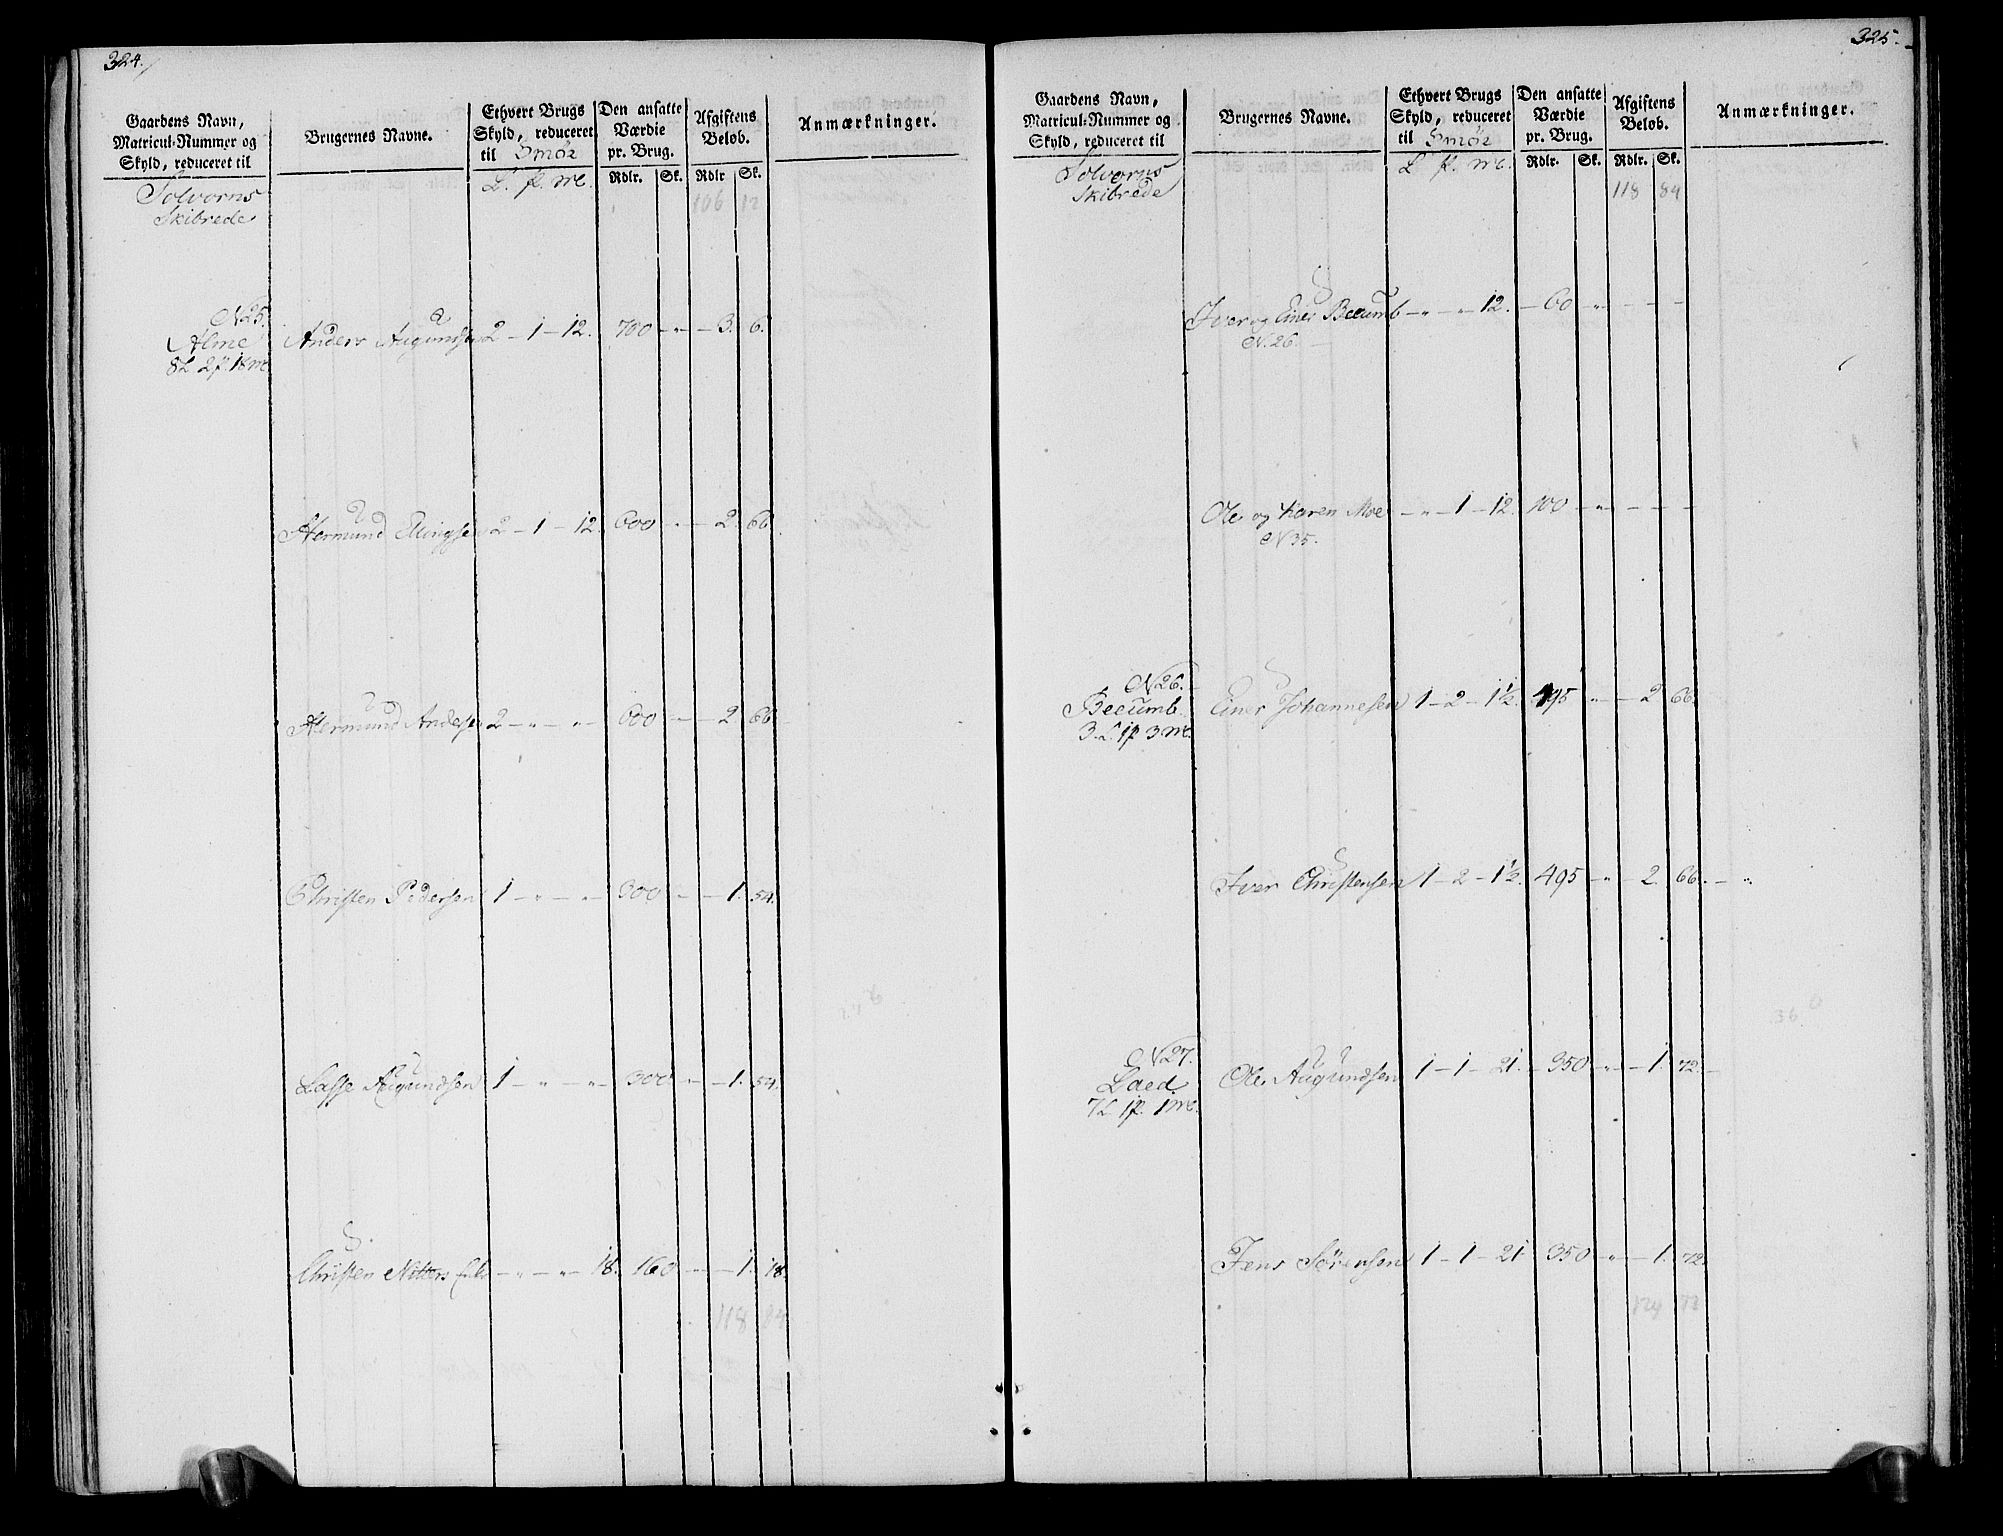 324.
Gaardens Navn,
Matricul-Nummer og
Skyld, reduceret til
Brugernes Navne.
Ethvert Brugs
Skyld, reduceret
til Smör
L. p. mk.
Den ansatte
Værdie
pr. Brug.
Rdlr. Sk.
Afgiftens
Beløb.
Rdlr Sk.
Anmærkninger.
Solvorns
Skibrede
106 12
N 25.
Alme
8L 2p. 18mk.
Anders Augundsen 2 - 1 - 12. 700 - " - 3. 6.
Hermund Ellingsen 2 - 1 - 12. 600 - " - 2. 66.
Hermund Andersen 2 - " - " - 600 - " - 2. 66.
Christen Pedersen 1 - " - " - 300 - " - 1. 54.
Lasse Augundsen 1 - " - " - 300 - " - 1. 54.
Christen Nitters Enke - " - " - 18. 160 - " - 1. 18.
118 84
325.
Gaardens Navn,
Matricul-Nummer og
Skyld, reduceret til
Brugernes Navne.
Ethvert Brugs
Skyld, reduceret
til Smör
L p. mk.
Den ansatte
Værdie
pr. Brug.
Rdlr. Sk.
Afgiftens
Beløb.
Rdlr. Sk.
Anmærkninger.
Solvorns
Skibrede
118 84
Iver og Einer Beeumb - " - " 12. - 60 - " - - -
N. 26.
Ole og Karen Moe - " - 1 - 12. 100 - " - - -
N 35.
N 26.
Beeumb.
3. L. 1p. 3mk.
Einer Johannesen 1 - 2 - 1½. 495 - " - 2. 66.
Iver Christensen 1 - 2 - 1½. 495 - " - 2. 66. - "
N 27.
Laed
7L. 1p. 1mk.
Ole Augundsen 1 - 1 - 21. - 350 - " - 1. 72. -
Jens Sörensen 1 - 1 - 21 - 350 - " - 1. 72.
129 72